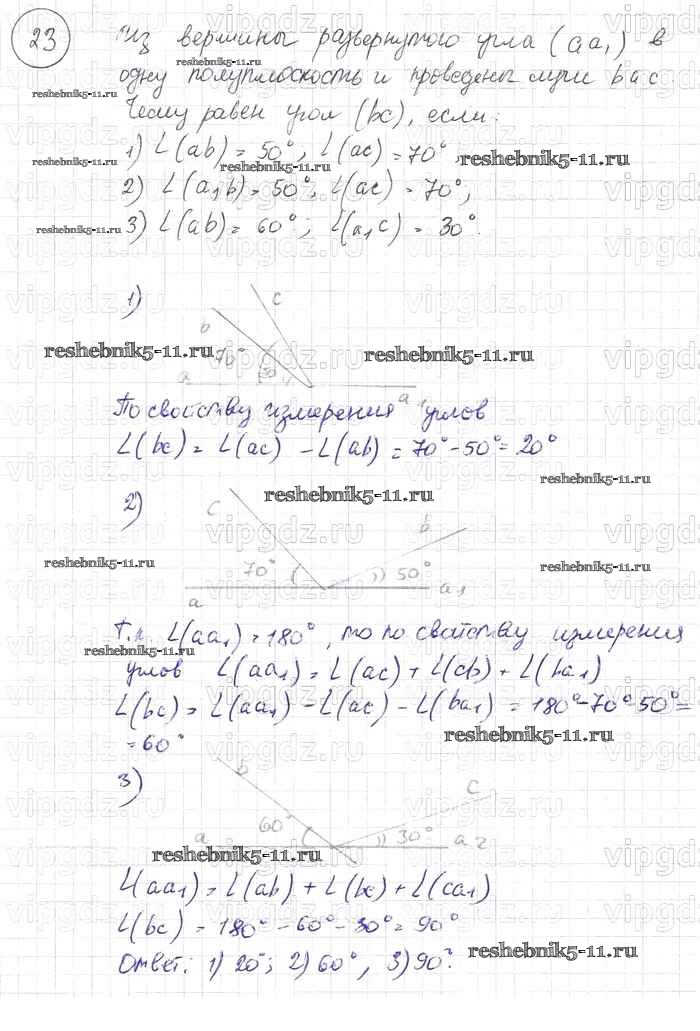 23
Из вершины развернутого угла (aa₁) в
одну полуплоскость и проведены лучи b и c.
Чему равен угол (bc), если:
1) ∠(ab) = 50°, ∠(ac) = 70°,
2) ∠(a₁b) = 50°, ∠(ac) = 70°,
3) ∠(ab) = 60°, ∠(a₁c) = 30°.
1)
c
b
70°
50°
a
a₁
По свойству измерения углов
∠(bc) = ∠(ac) - ∠(ab) = 70° - 50° = 20°
2)
c
b
70°
50°
a
a₁
Т.к. ∠(aa₁) = 180°, то по свойству измерения
углов ∠(aa₁) = ∠(ac) + ∠(cb) + ∠(ba₁)
∠(bc) = ∠(aa₁) - ∠(ac) - ∠(ba₁) = 180° - 70° - 50° =
= 60°
3)
b
c
60°
30°
a
a₂
∠(aa₁) = ∠(ab) + ∠(bc) + ∠(ca₁)
∠(bc) = 180° - 60° - 30° = 90°
Ответ: 1) 20°; 2) 60°, 3) 90°.
reshebnik5-11.ru
vipgdz.ru